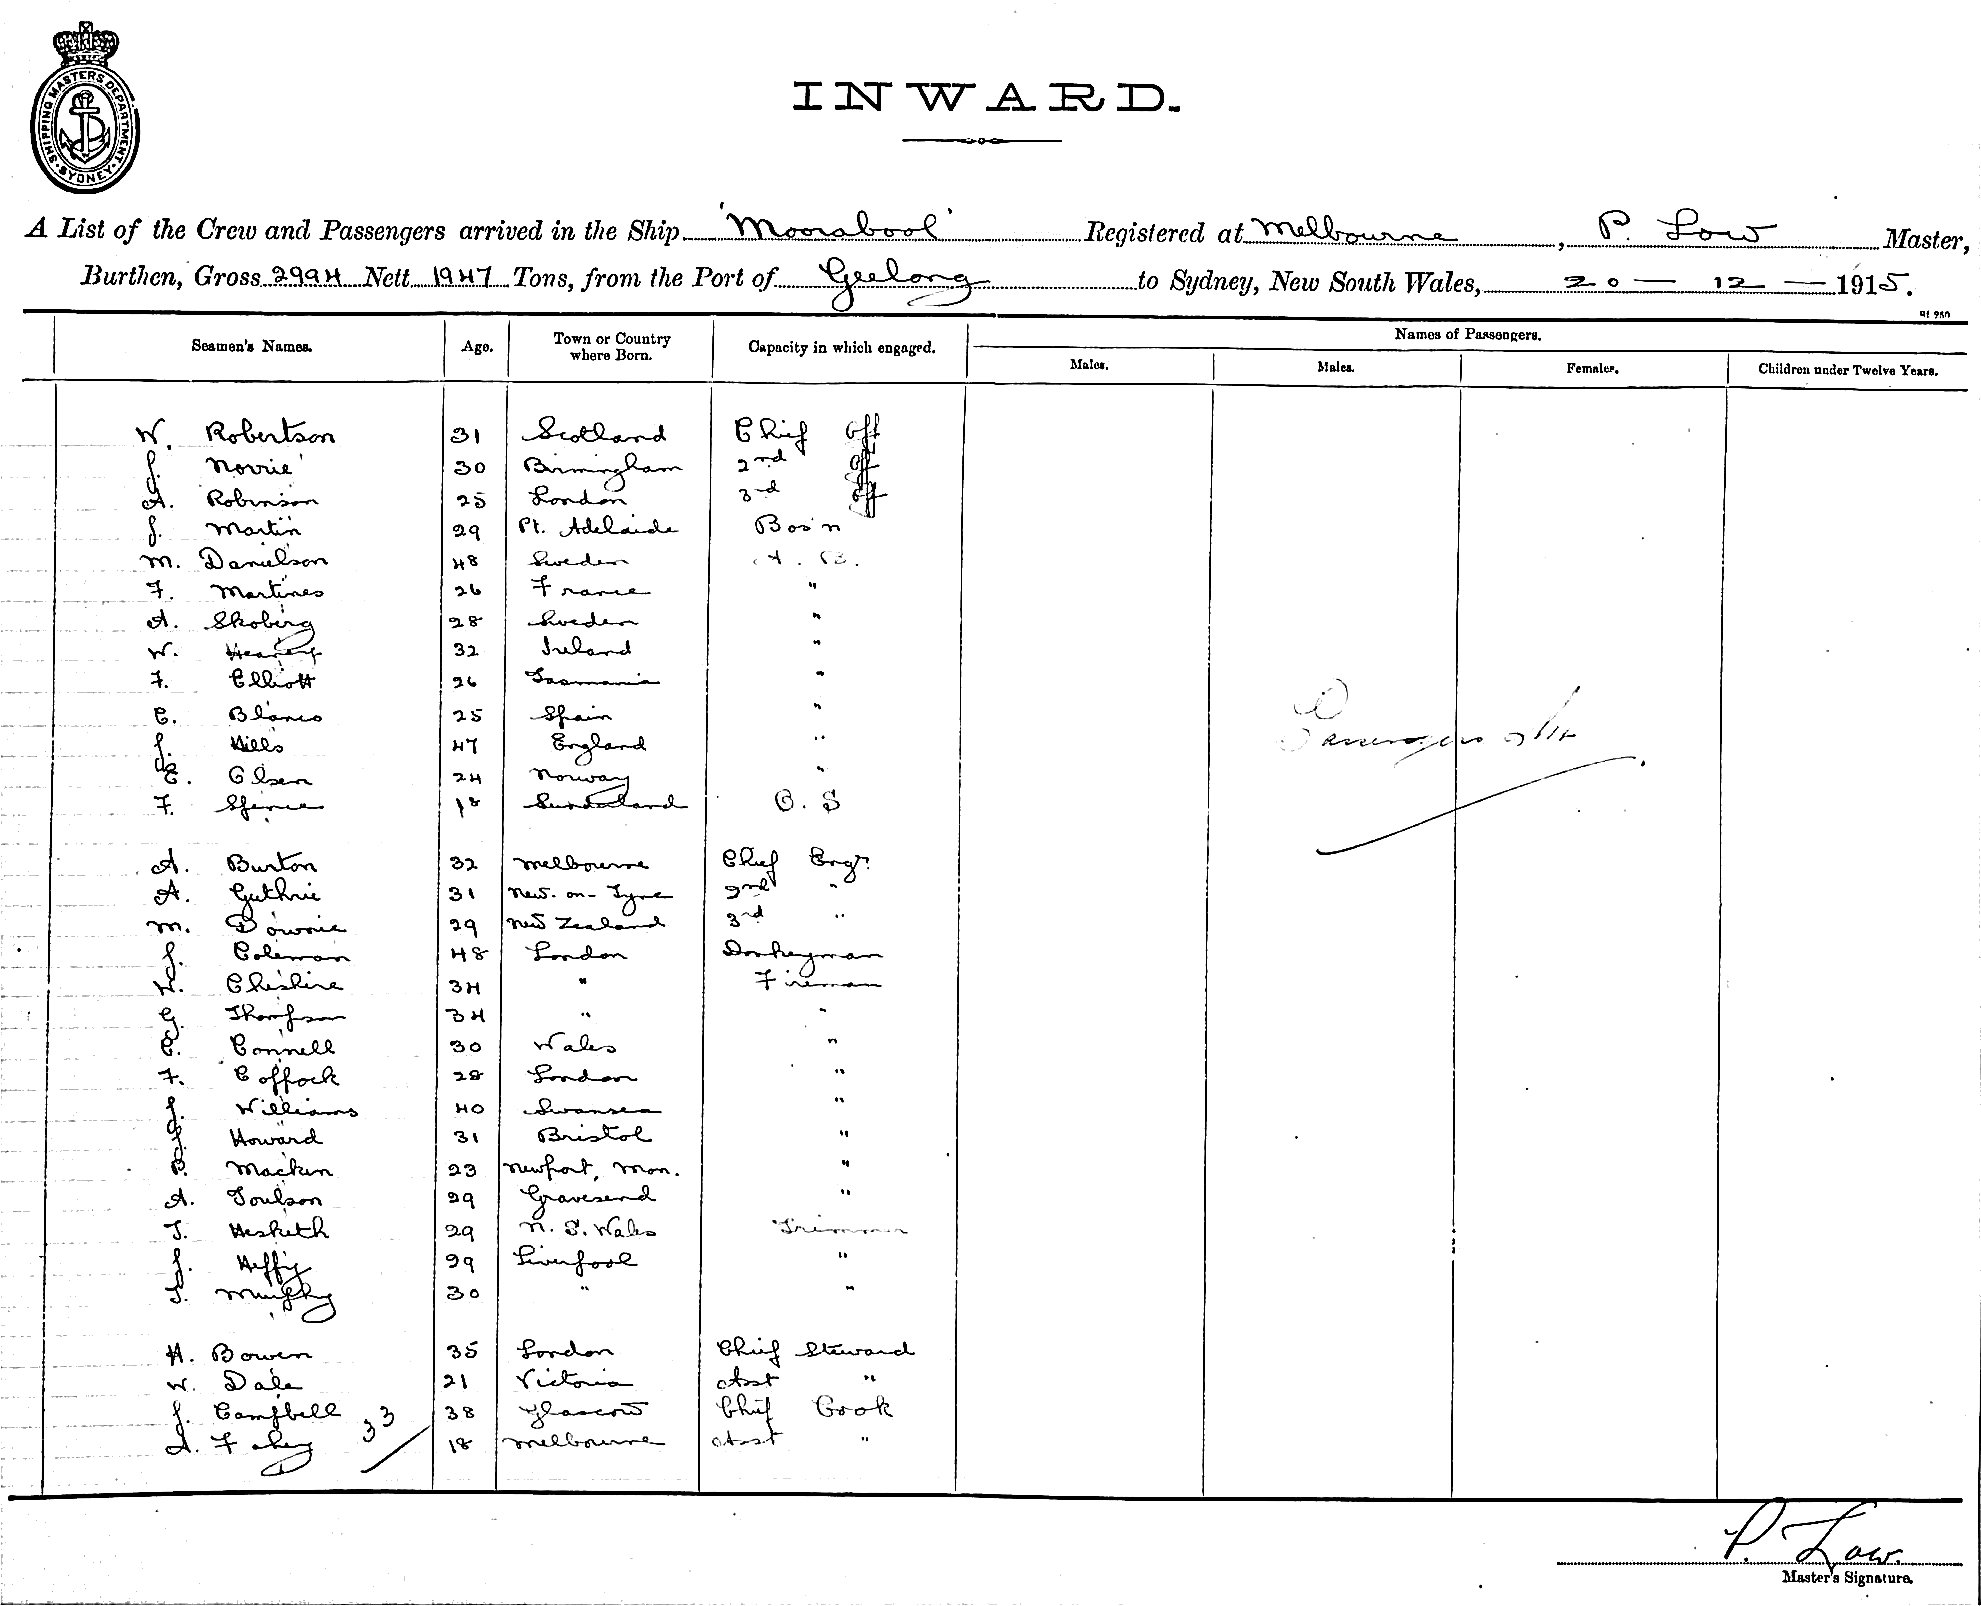 SHIPPING MASTERS DEPARTMENT · SYDNEY ·
INWARD.
A List of the Crew and Passengers arrived in the Ship 'Moorabool' Registered at Melbourne, P. Low Master,
Burthen, Gross 2994 Nett 1947 Tons, from the Port of Geelong to Sydney, New South Wales, 20 — 12 — 1915.
Seamen's Names. Age. Town or Country where Born. Capacity in which engaged. Names of Passengers.
Males. Males. Females. Children under Twelve Years.
W. Robertson 31 Scotland Chief Off
J. Norrie 30 Birmingham 2nd Off
A. Robinson 25 London 3rd Off
J. Martin 29 Pt. Adelaide Bos'n
M. Danielson 48 Sweden A. B.
F. Martines 26 France "
A. Skoberg 28 Sweden "
W. 32 Ireland "
F. Elliott 26 Tasmania "
C. Blanco 25 Spain "
J. Hills 47 England "
E. Olsen 24 Norway "
F. Spence 18 Sunderland O. S
Passengers
A. Burton 32 Melbourne Chief Engr.
A. Guthrie 31 New. on-Tyne 2nd "
M. Downie 29 New Zealand 3rd "
J. Coleman 48 London Donkeyman
W. Cheshire 34 " Fireman
G. Thompson 34 " "
C. Connell 30 Wales "
F. Coppock 28 London "
J. Williams 40 Swansea "
J. Howard 31 Bristol "
P. Mackin 23 Newport, Mon. "
A. Toulson 29 Gravesend "
T. Hesketh 29 N. S. Wales Trimmer
J. 29 Liverpool "
T. Murphy 30 " "
H. Bowen 35 London Chief Steward
W. Dale 21 Victoria Asst "
J. Campbell 38 Glascow Chief Cook
A. Fahey 18 Melbourne Asst "
33
P. Low.
Master's Signature.